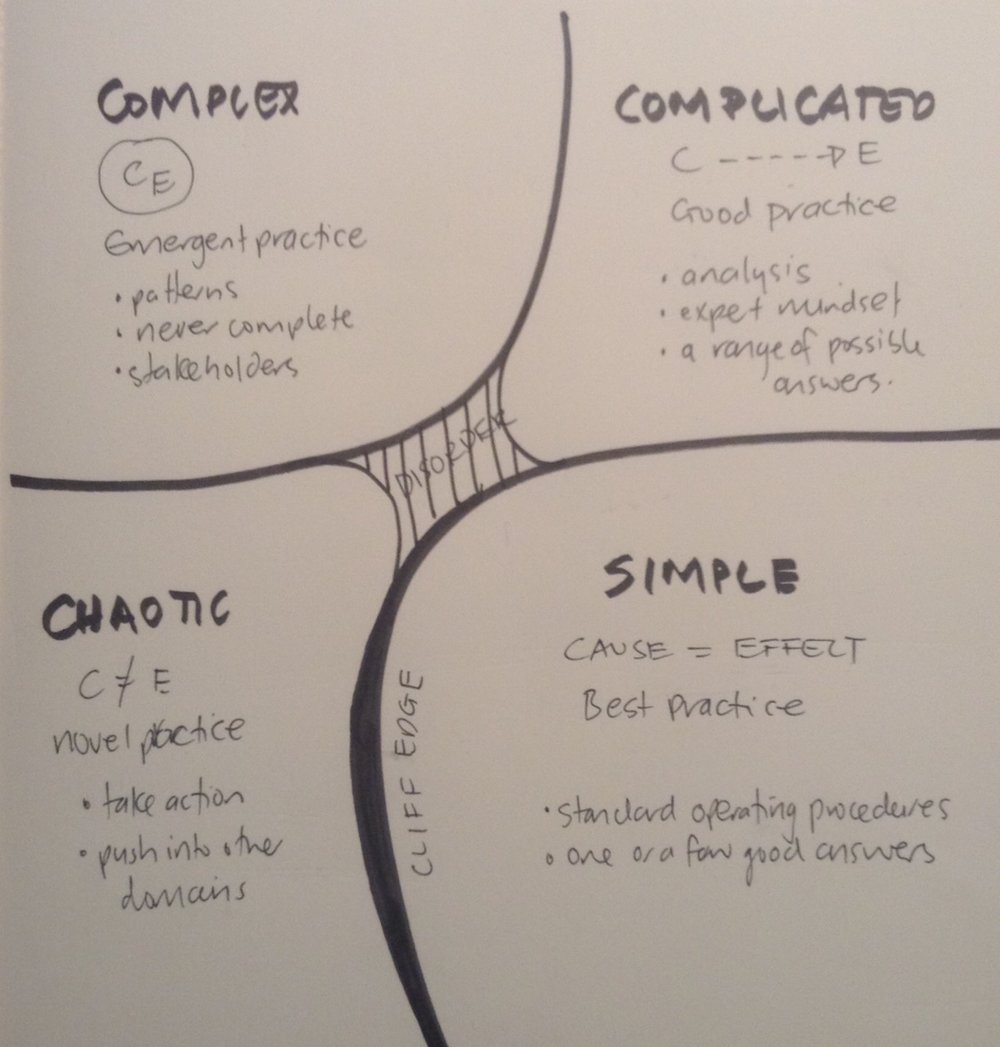 COMPLEX
CE
Emergent practice
• patterns
• never complete
• stakeholders
COMPLICATED
C -----> E
Good practice
• analysis
• expet mindset
• a range of possible
answers.
DISORDER
CHAOTIC
C ≠ E
novel practice
• take action
• push into other
domains
CLIFF EDGE
SIMPLE
CAUSE = EFFECT
Best practice
• standard operating procedures
• one or a few good answers